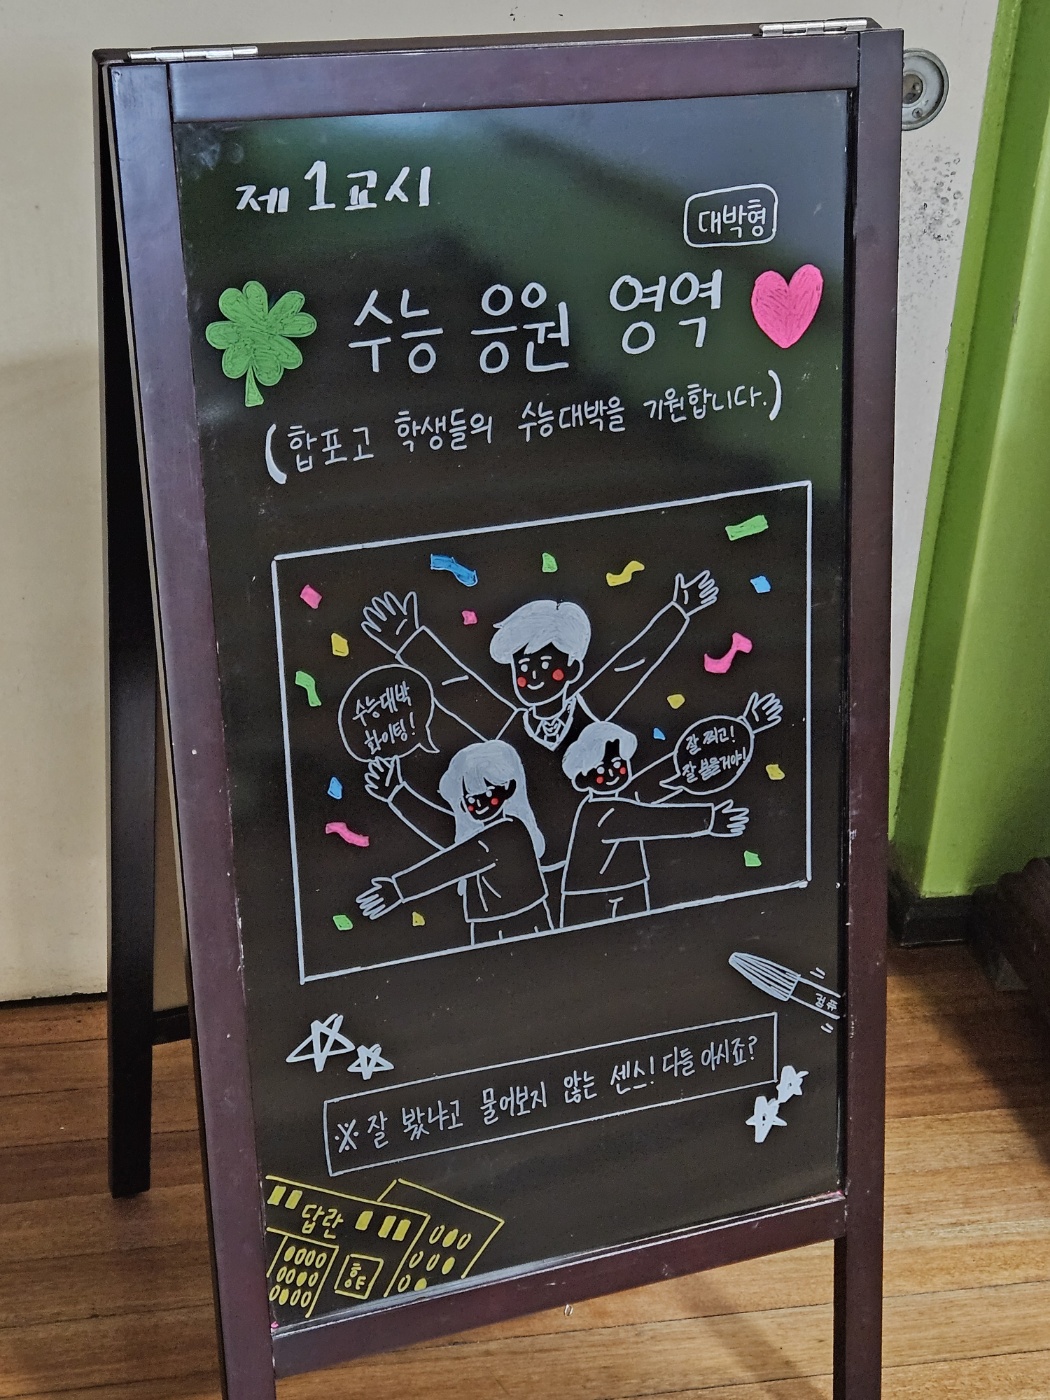 제 1 교시
대박형
수능 응원 영역
(합포고 학생들의 수능대박을 기원합니다.)
수능대박
화이팅!
잘 찍고!
잘 붙을거야!
※ 잘 봤냐고 물어보지 않는 센스! 다들 아시죠?
답란